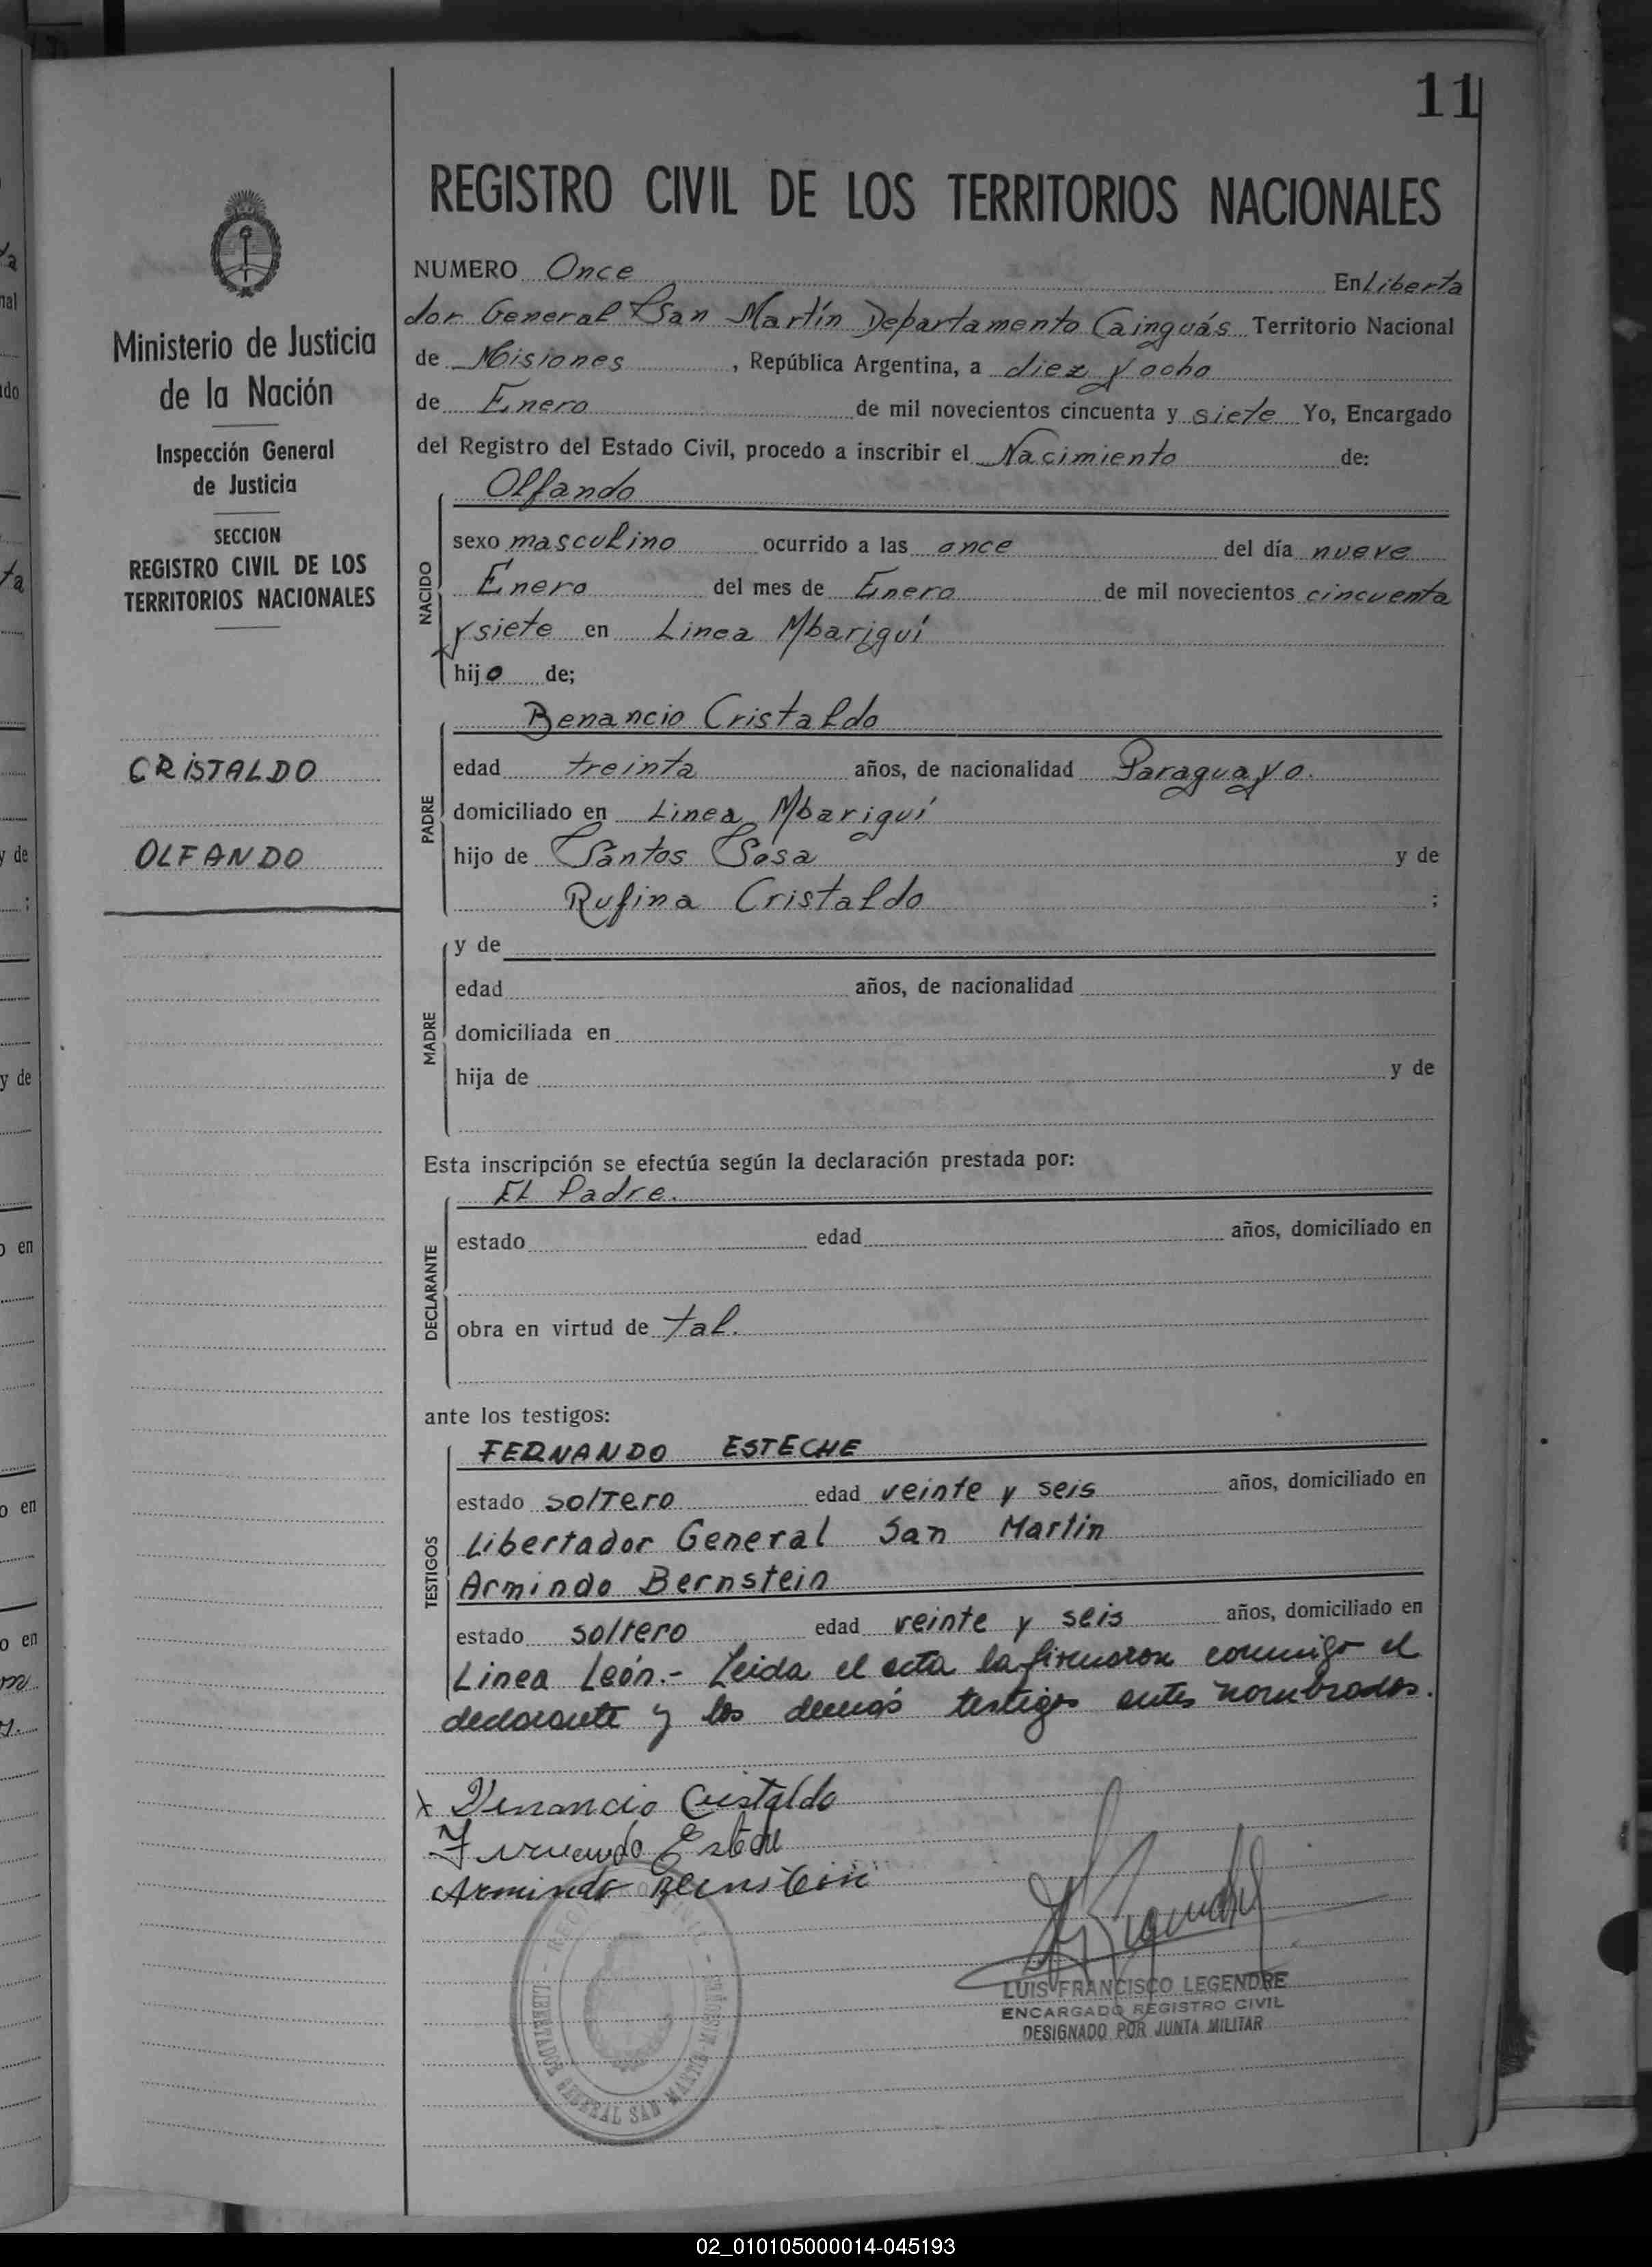 11
REGISTRO CIVIL DE LOS TERRITORIOS NACIONALES
Ministerio de Justicia
de la Nación
Inspección General
de Justicia
SECCION
REGISTRO CIVIL DE LOS
TERRITORIOS NACIONALES
CRISTALDO
OLFANDO
NUMERO Once En Liberta
dor General San Martín Departamento Cainguás Territorio Nacional
de Misiones , República Argentina, a diez y ocho
de Enero de mil novecientos cincuenta y siete Yo, Encargado
del Registro del Estado Civil, procedo a inscribir el Nacimiento de:
NACIDO
Olfando
sexo masculino ocurrido a las once del día nueve
Enero del mes de Enero de mil novecientos cincuenta
y siete en Linea Mbariguí
hijo de;
PADRE
Benancio Cristaldo
edad treinta años, de nacionalidad Paraguayo.
domiciliado en Linea Mbariguí
hijo de Santos Sosa y de
Rufina Cristaldo ;
MADRE
y de
edad años, de nacionalidad
domiciliada en
hija de y de
Esta inscripción se efectúa según la declaración prestada por:
DECLARANTE
El Padre.
estado edad años, domiciliado en
obra en virtud de tal.
ante los testigos:
TESTIGOS
FERNANDO ESTECHE
estado soltero edad veinte y seis años, domiciliado en
Libertador General San Martin
Armindo Bernstein
estado soltero edad veinte y seis años, domiciliado en
Linea León.- Leida el acta la firmaron conmigo el
declarante y los demás testigos antes nombrados.
x Venancio Cristaldo
Fernando Esteche
Armindo Bernstein
LIBERTADOR GENERAL SAN MARTIN
LUIS FRANCISCO LEGENDRE
ENCARGADO REGISTRO CIVIL
DESIGNADO POR JUNTA MILITAR
02_010105000014-045193